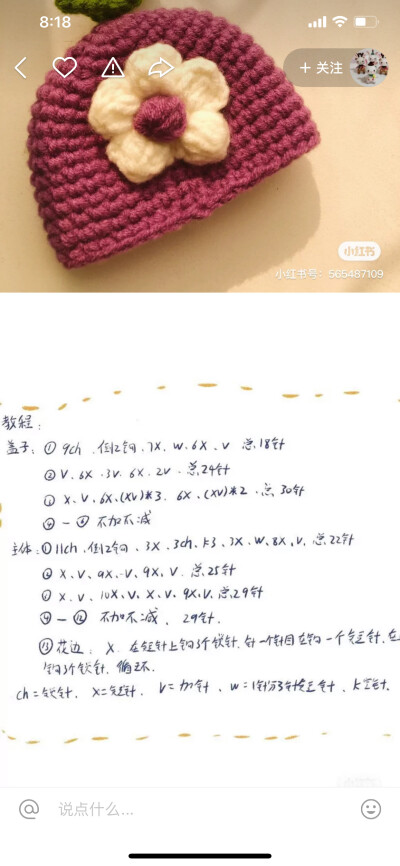 8:18
+ 关注
小红书
小红书号：565487109
教程：
盖子：① 9ch、倒2钩、7X、W、6X、V 总18针
② V、6X、3V、6X、2V、总24针
③ X、V、6X、(XV)*3、6X、(XV)*2、总30针
④ — ⑧ 不加不减
主体：① 11ch、倒2钩、3X、3ch、k3、3X、W、8X、V、总22针
② X、V、9X、V、9X、V、总25针
③ X、V、10X、V、X、V、9X、V、总29针
④ — ⑫ 不加不减、29针、
⑬ 花边：X、在短针上钩3个锁针、针目在钩一个短针、在
钩3个锁针、循环、
ch=锁针、X=短针、V=加针、W=1针分3针短针、k空针、
@ 说点什么...